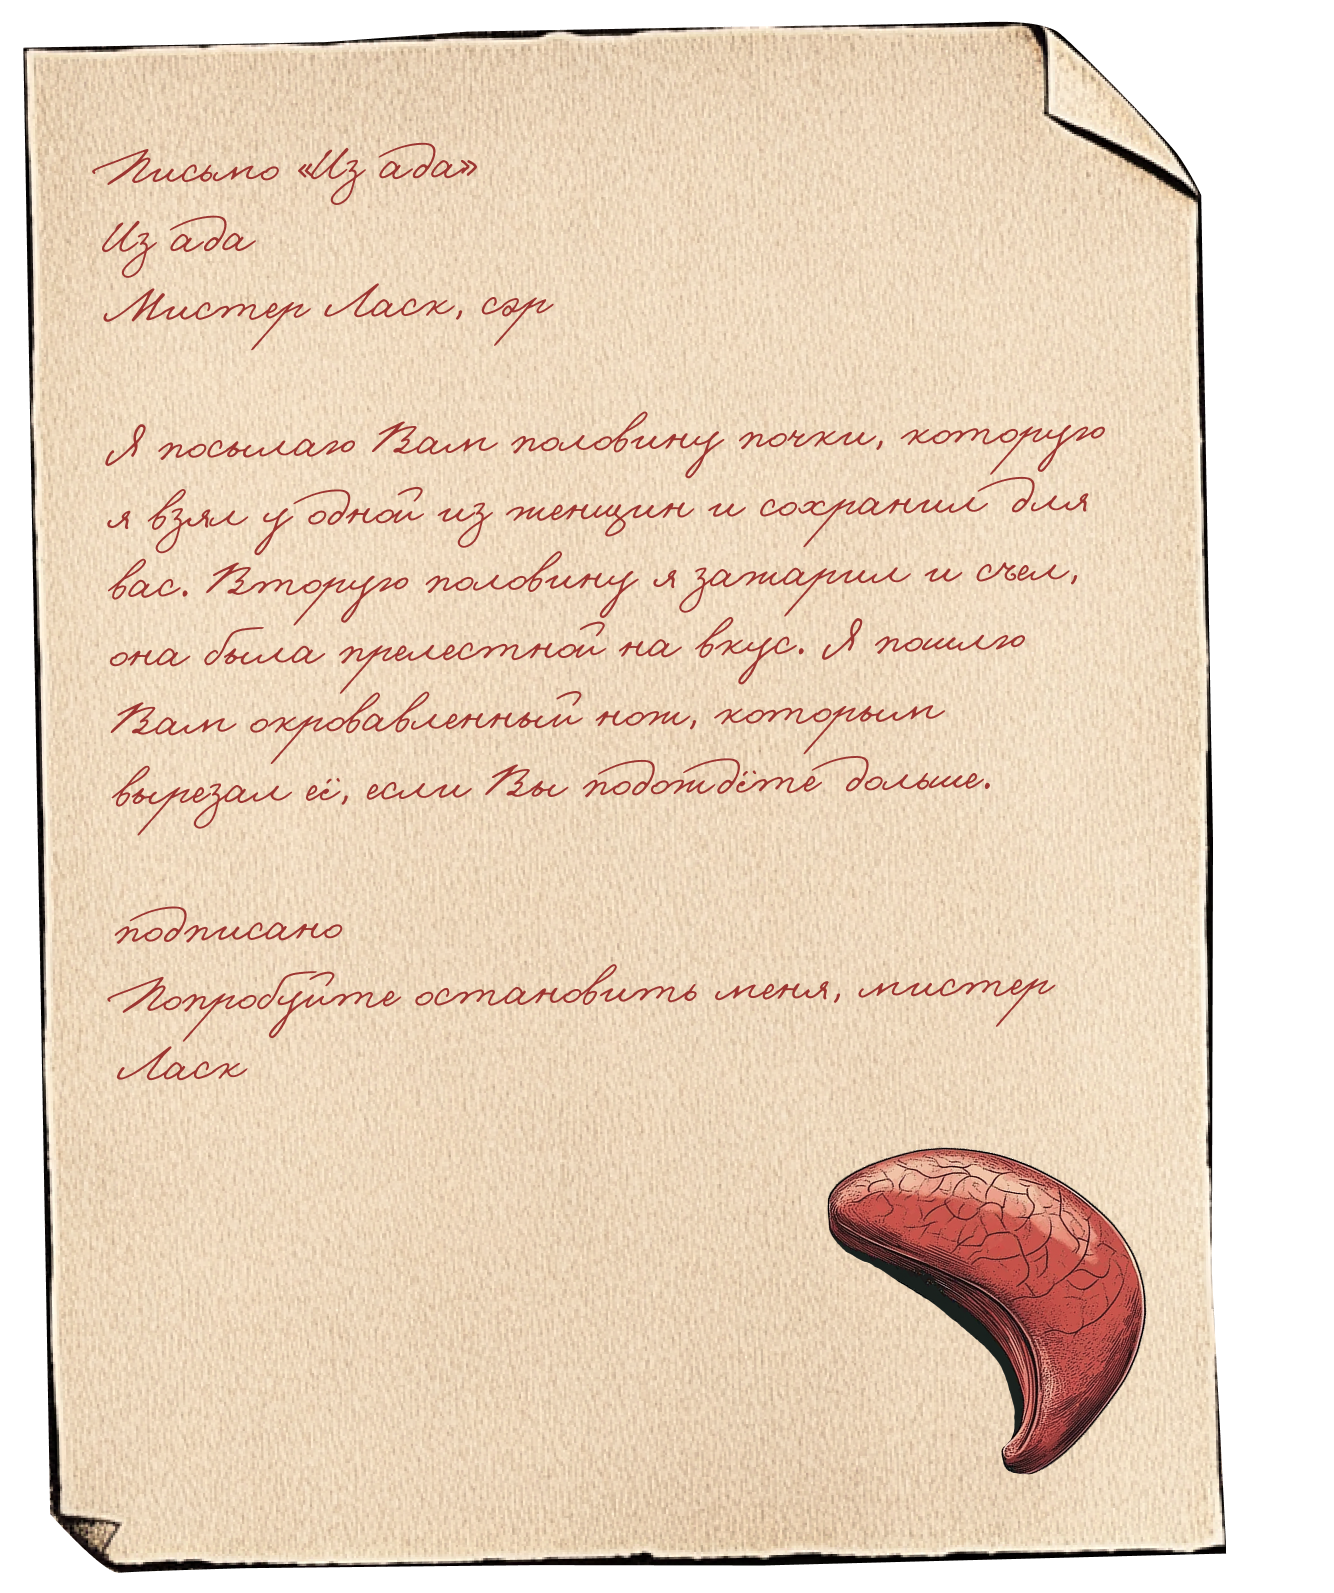 Письмо «Из ада»
Из ада
Мистер Ласк, сэр
Я посылаю Вам половину почки, которую
я взял у одной из женщин и сохранил для
вас. Вторую половину я зажарил и съел,
она была прелестной на вкус. Я пошлю
Вам окровавленный нож, которым
вырезал её, если Вы подождёте дольше.
подписано
Попробуйте остановить меня, мистер
Ласк